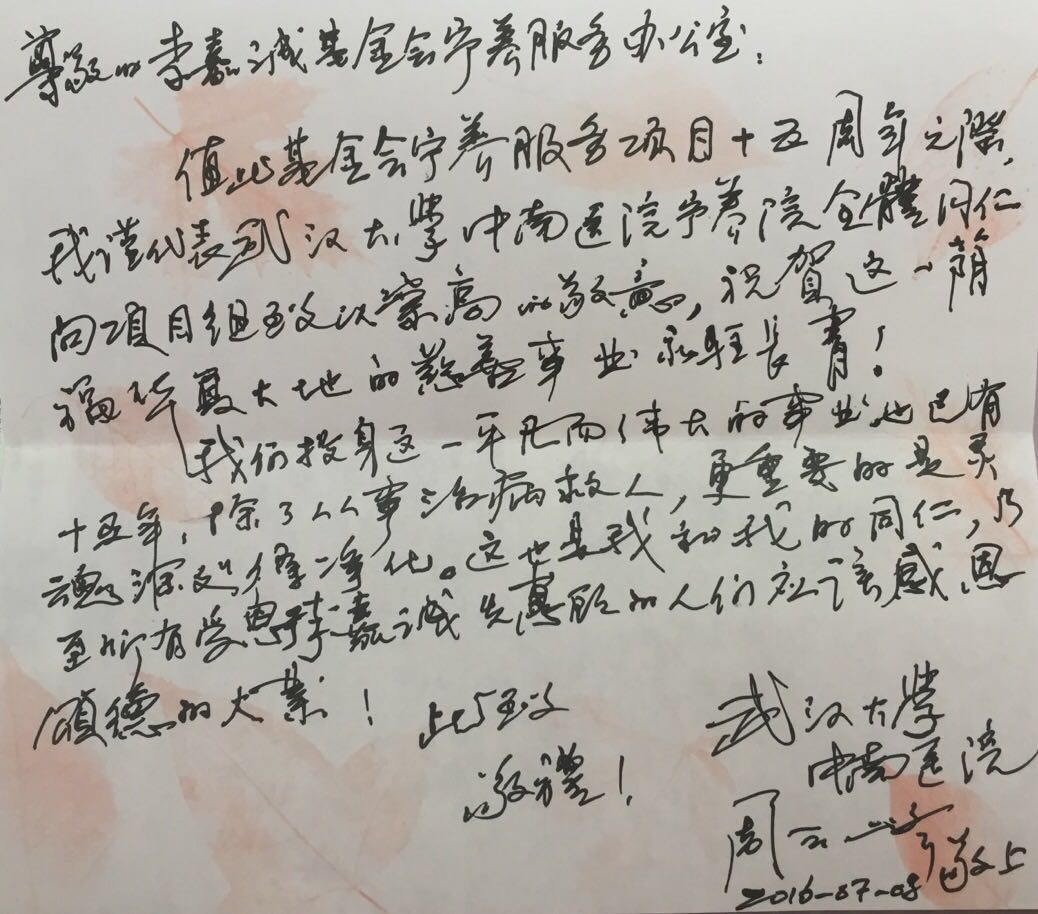 尊敬的李嘉诚基金会宁养服务办公室：
值此基金会宁养服务项目十五周年之際，
我谨代表武汉大學中南医院宁养院全體同仁
向项目组致以崇高的敬意，祝贺这一荫
福华夏大地的慈善事业永駐長青！
我们投身这一平凡而伟大的事业也已有
十五年，除了从事治病救人，更重要的是灵
魂深处得净化。这也是我和我的同仁，乃
至所有受惠李嘉诚先生的人们应该感恩
颂德的大業！
此致
敬禮！
武汉大學
中南医院
周云
敬上
2016-07-08